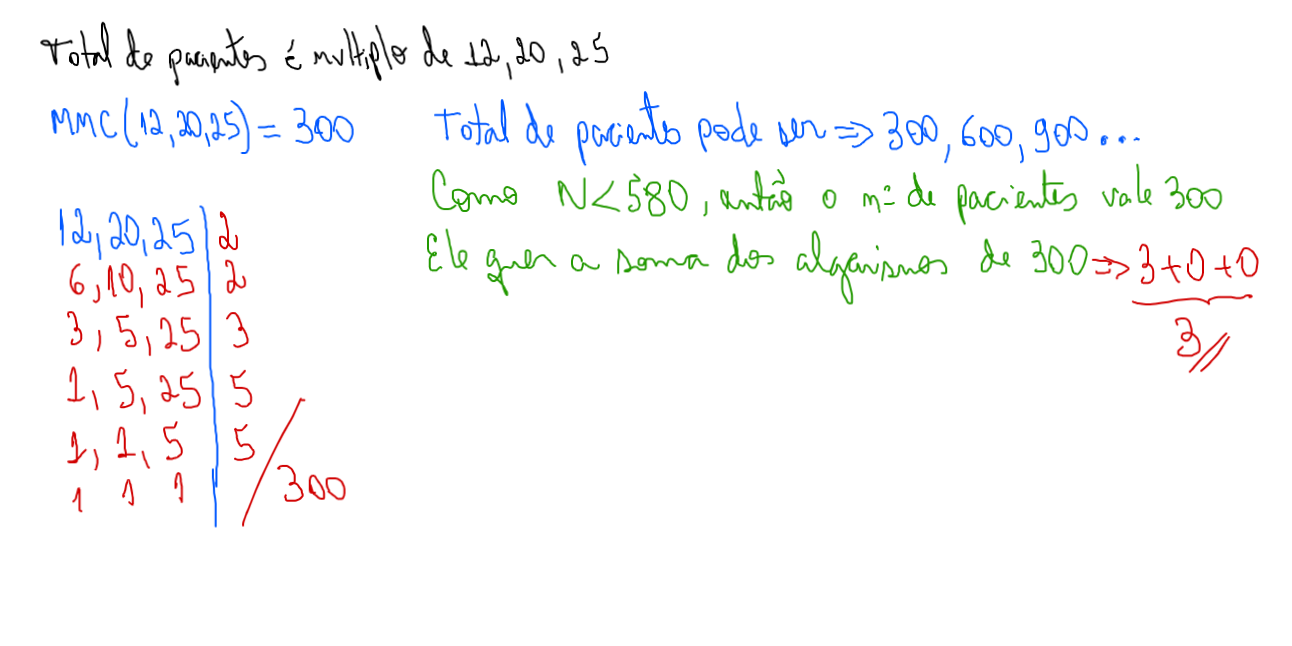 Total de pacientes é multiplo de 12, 20, 25
MMC(12,20,25) = 300
Total de paciente pode ser => 300, 600, 900...
Como N < 580, então o nº de pacientes vale 300
Ele quer a soma dos algarismos de 300 => 3+0+0
3//
12, 20, 25 | 2
6, 10, 25 | 2
3, 5, 25 | 3
1, 5, 25 | 5
1, 1, 5 | 5
1 1 1 | / 300